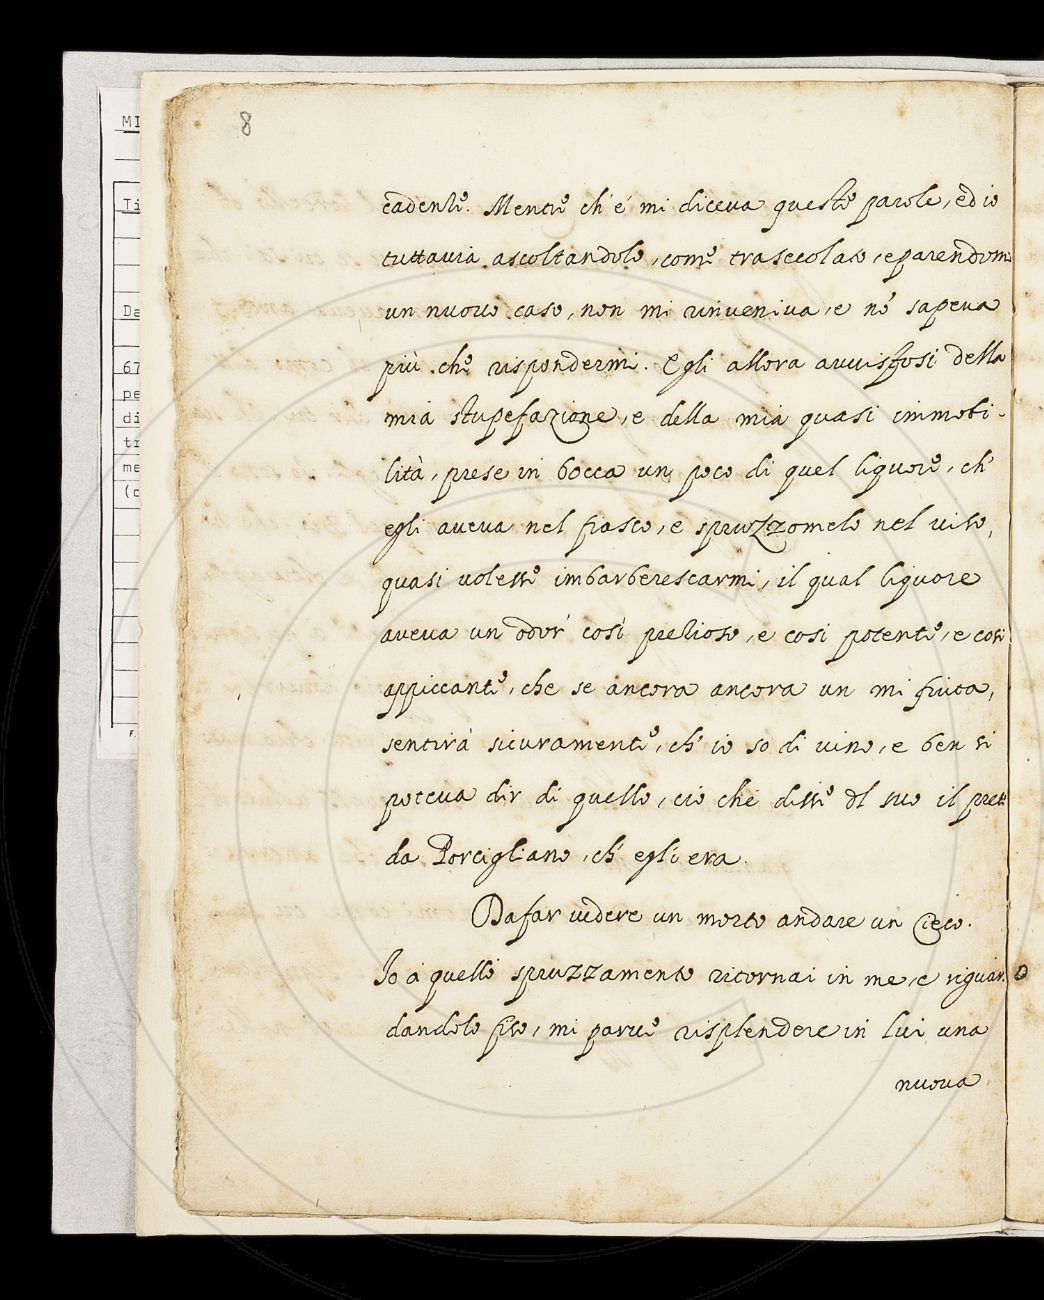 8
MI
Ti
Da
67
pe
di
tr
me
(c
F.
cadente. Mentre ch' e' mi diceva queste parole, ed io
tuttavia ascoltandolo, come trasecolato, e parendomi
un nuovo caso, non mi rinveniva, e né sapeva
più che rispondermi. Egli allora avvistosi della
mia stupefazione, e della mia quasi immobi-
lità, prese in bocca un poco di quel liquore, ch'
egli aveva nel fiasco, e spruzzomelo nel viso,
quasi volesse imbarberescarmi, il qual liquore
aveva un odor così prezioso, e così potente, e così
appiccante, che se ancora ancora un mi fiuta,
sentirà sicuramente, ch' io so di vino, e ben si
poteva dir di quello, ciò che disse del suo il prete
da Porcigliano, ch' egli era.
Da far vedere un morto andare un Cieco.
Io a quello spruzzamento ritornai in me, e riguar-
dandolo fiso, mi parve risplendere in lui una
nuova